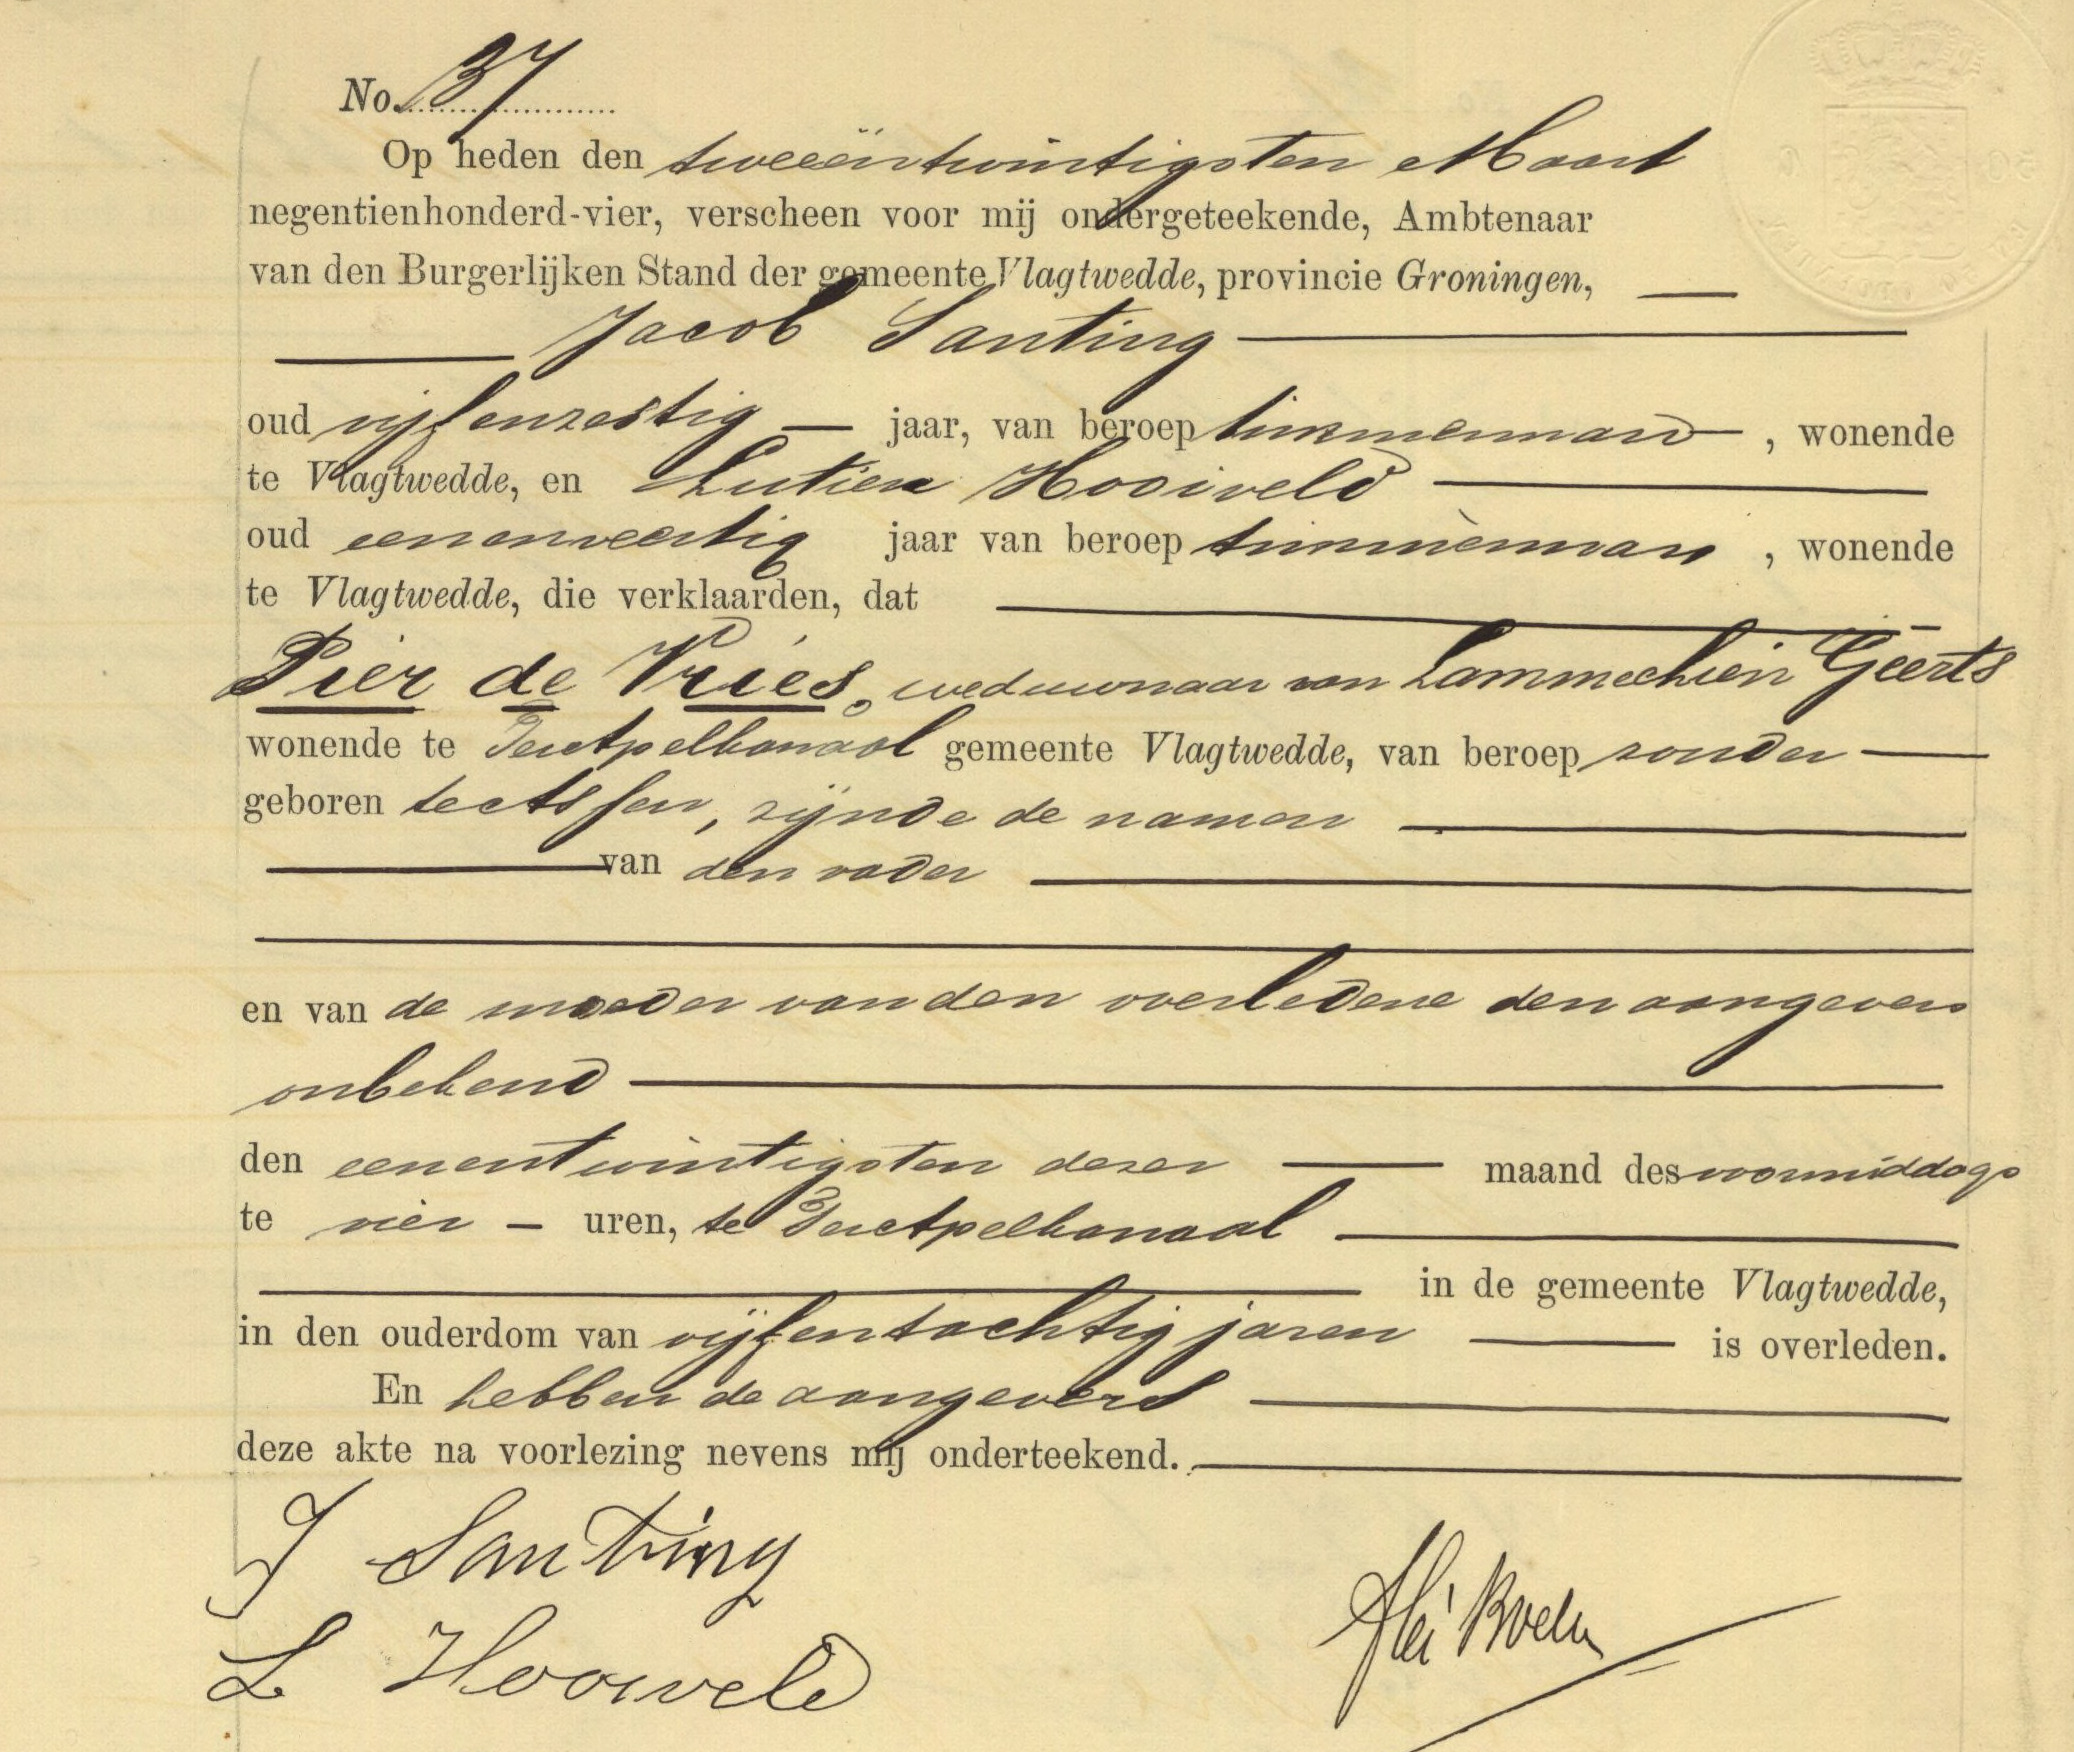 No. 37
Op heden den tweeëntwintigsten Maart
negentienhonderd-vier, verscheen voor mij ondergeteekende, Ambtenaar
van den Burgerlijken Stand der gemeente Vlagtwedde, provincie Groningen,
Jacob Santing
oud vijfenzestig jaar, van beroep timmerman, wonende
te Vlagtwedde, en Lutien Hooiveld
oud eenenveertig jaar van beroep timmerman, wonende
te Vlagtwedde, die verklaarden, dat
Pier de Vries, weduwnaar van Lammechien Geerts
wonende te Terapelkanaal gemeente Vlagtwedde, van beroep zonder
geboren te , zijnde de namen
van den vader
en van de moeder van den overledene den aangevers
onbekend
den eenentwintigsten dezer maand des voormiddags
te vier uren, te Terapelkanaal
in de gemeente Vlagtwedde,
in den ouderdom van vijfentachtig jaren is overleden.
En hebben de aangevers
deze akte na voorlezing nevens mij onderteekend.
J Santing
L Hooiveld